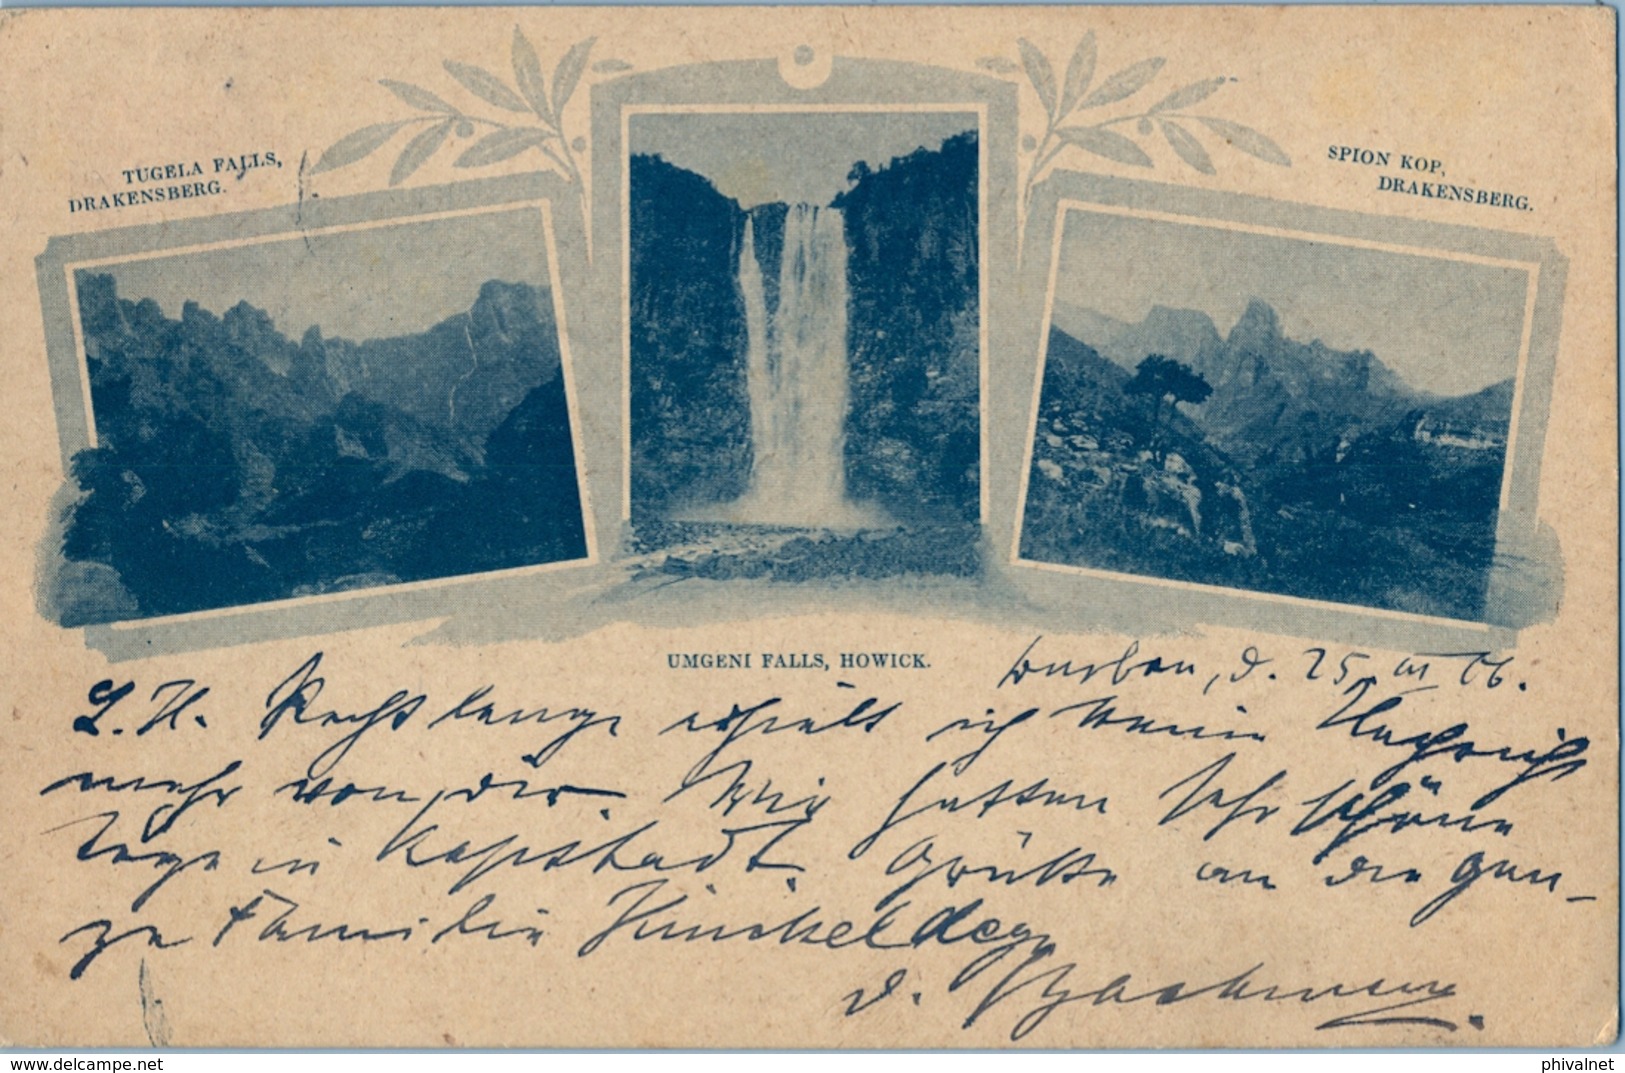 TUGELA FALLS,
DRAKENSBERG.
SPION KOP,
DRAKENSBERG.
UMGENI FALLS, HOWICK.
Durban, d. 25. 06.
L. H. Recht lange erhielt ich keine Nachricht
mehr von dir. Wir hatten sehr schöne
Tage in Kapstadt. Grüße an die gan-
ze Familie
d.
delcampe.net
phivalnet